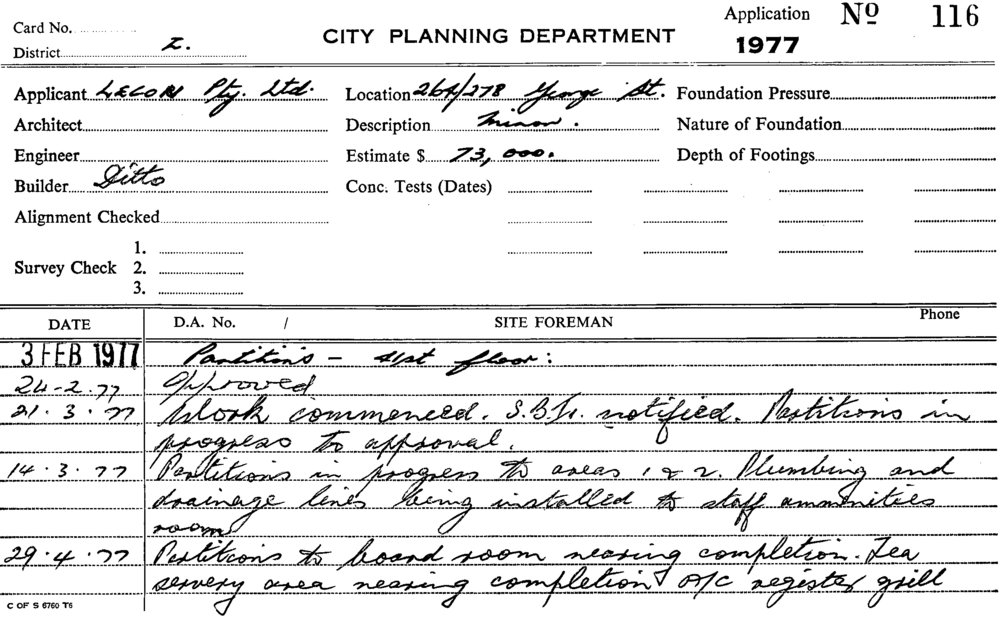 Card No.
District Z.
CITY PLANNING DEPARTMENT
Application Nº 116
1977
Applicant LECON Pty. Ltd. Location 264/278 George St. Foundation Pressure
Architect Description Minor. Nature of Foundation
Engineer Estimate $ 73,000. Depth of Footings
Builder Ditto Conc. Tests (Dates)
Alignment Checked
1.
Survey Check 2.
3.
DATE D.A. No. / SITE FOREMAN Phone
3 FEB 1977 Partitions - 41st floor:
24-2.77 Approved
21.3.77 Work commenced. notified. Partitions in
progress to approval.
14.3.77 Partitions in progress to areas 1 & 2. Plumbing and
drainage lines being installed to staff ammenities
room
29.4.77 Partitions to board room nearing completion. Tea
servery area nearing completion & A/C register grill
C OF S 6760 T6